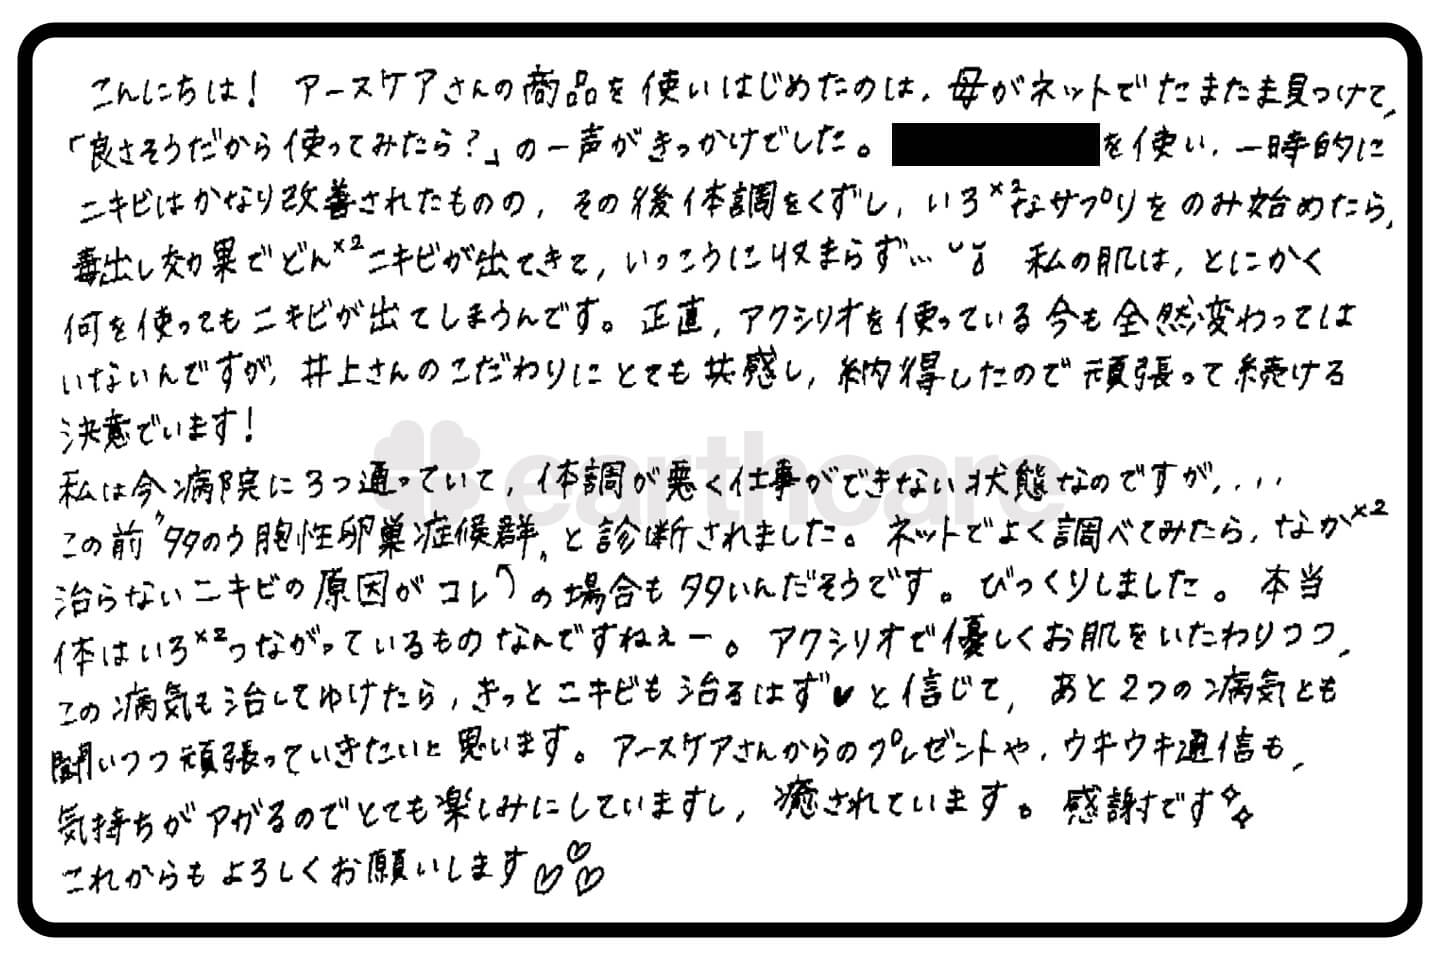 こんにちは! アースケアさんの商品を使いはじめたのは、母がネットでたまたま見つけて、
「良さそうだから使ってみたら?」の一声がきっかけでした。を使い、一時的に
ニキビはかなり改善されたものの、その後体調をくずし、いろ×2なサプリをのみ始めたら、
毒出し効果でどん×2ニキビが出てきて、いっこうに収まらず… 私の肌は、とにかく
何を使ってもニキビが出てしまうんです。正直、アクシリオを使っている今も全然変わっては
いないんですが、井上さんのこだわりにとても共感し、納得したので頑張って続ける
決意でいます!
私は今病院に3つ通っていて、体調が悪く仕事ができない状態なのですが、...
この前"タタのう胞性卵巣症候群"と診断されました。ネットでよく調べてみたら、なか×2
治らないニキビの原因がコレ↑の場合もタタいんだそうです。びっくりしました。本当
体はいろ×2つながっているものなんですねぇー。アクシリオで優しくお肌をいたわりつつ、
この病気も治してゆけたら、きっとニキビも治るはず♥と信じて、あと2つの病気とも
闘いつつ頑張っていきたいと思います。アースケアさんからのプレゼントや、ウキウキ通信も、
気持ちがアガるのでとても楽しみにしていますし、癒されています。感謝です✧✧
これからもよろしくお願いします♡♡♡
earthcare